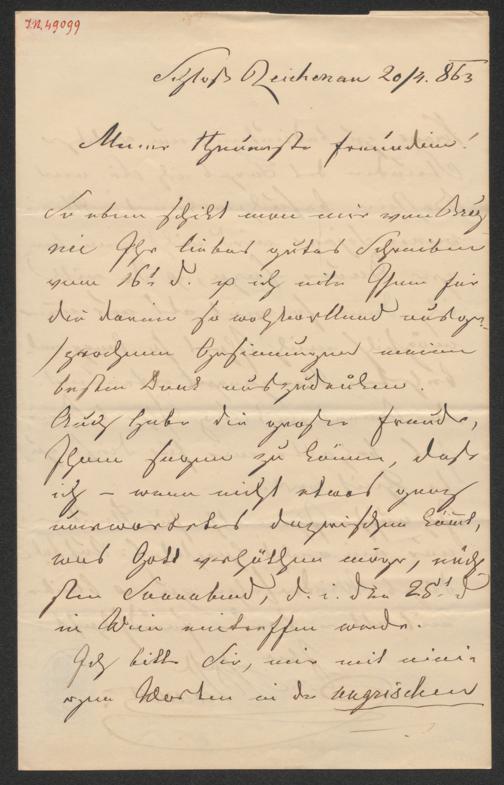 I.N. 49099
Schloß Reichenau 20/4. 863
Meine theuerste Freundin!
So eben schikt man mir von
nie Ihr liebes gutes Schreiben
vom 16t d. ich eile Ihnen für
die darin so wohlwollend ausge-
sprochenen Gesinnungen meinen
besten Dank auszudrüken.
Auch habe die große Freude,
Ihnen sagen zu können, daß
ich – wenn nicht etwas ganz
unerwartetes dazwischen kömt,
was Gott verhüthen möge, näch
sten Sonnabend, d. i. den 25t d
in Wien eintreffen werde.
Ich bitte Sie, mir mit eini-
gen Worten in die ungrischen